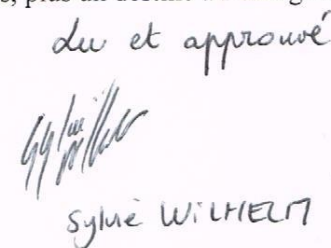 Lu et approuvé
Sylvie WILHELM